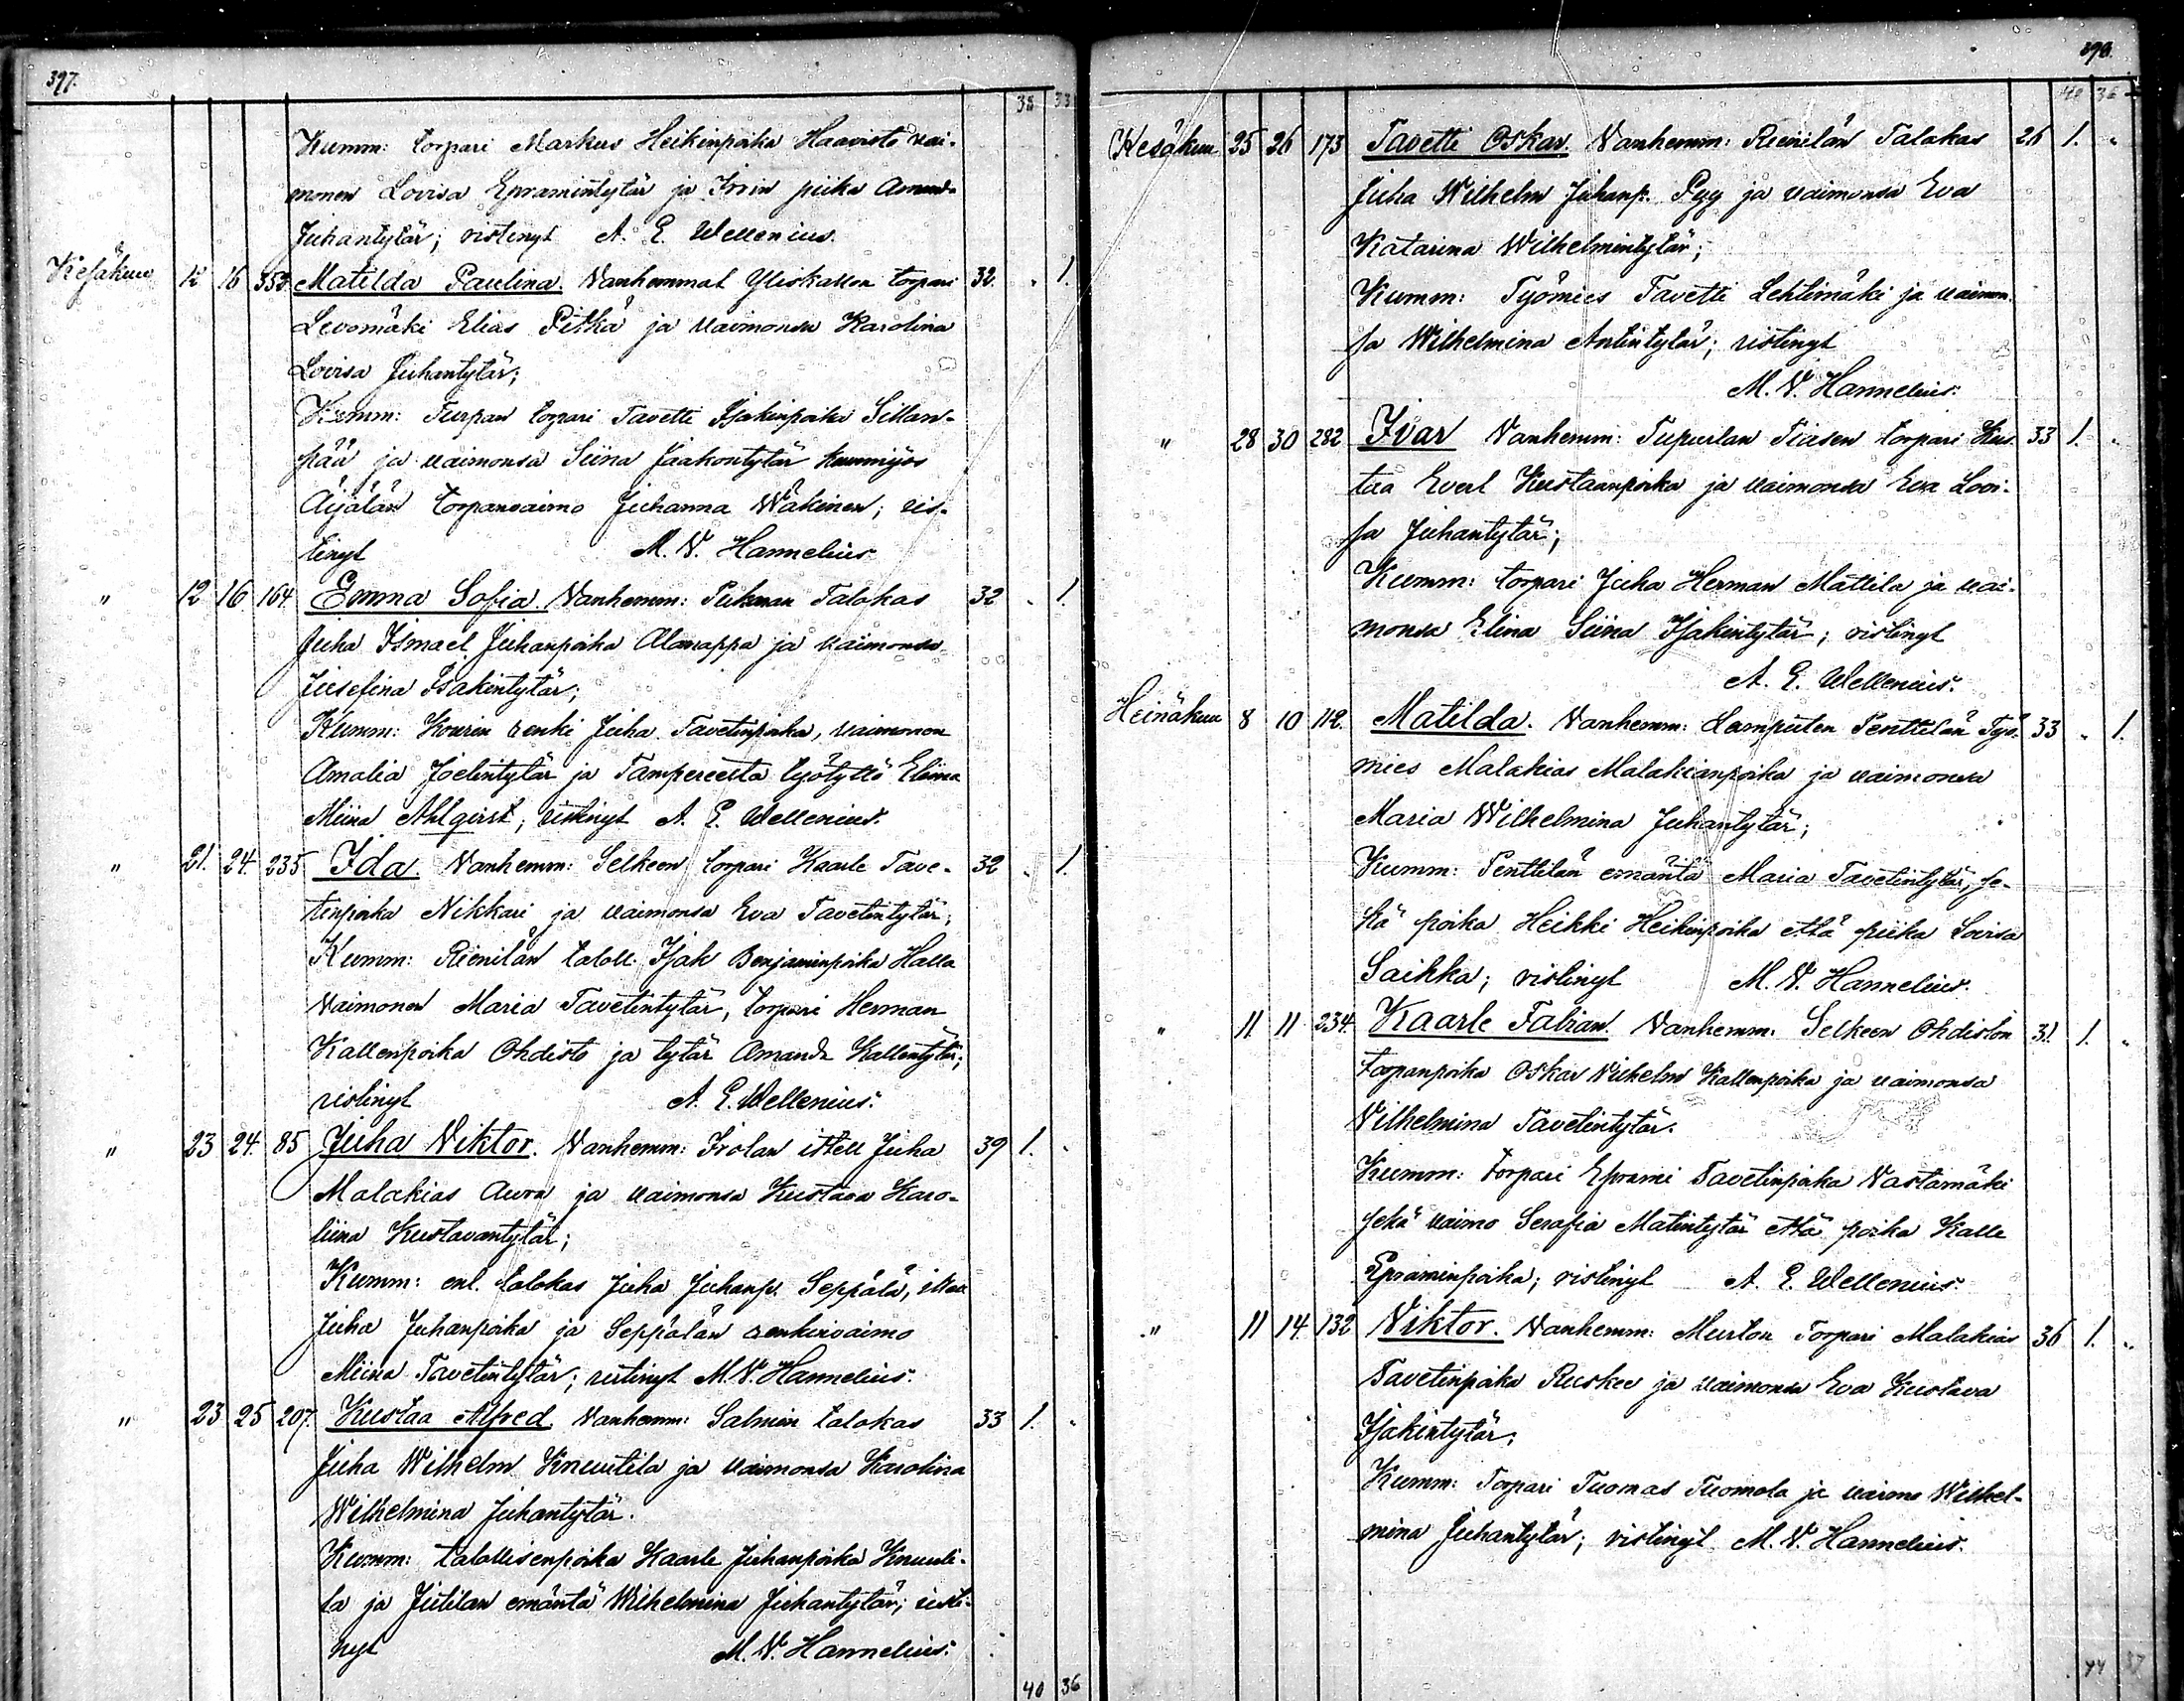 397.
38 33
Kumm: torpari Markus Heikinpoika Haavisto vai-
monen Lovisa Epramintytär ja Irin piika Amand-
Juhantytär; ristinyt A. E. Wellenius.
Kesäkuu 12 16 353. Matilda Paulina. Vanhemmat Yliskallon torpari 32. " 1.
Levomäki Elias Pitkä ja vaimonsa Karolina
Lovisa Juhantytär;
Kumm: Turpan torpari Tavetti Isakinpoika Sillan-
pää ja vaimonsa Siina Jaakontytär kuunmyös
Äijälän torpanvaimo Juhanna Wäkinen; ris-
tinyt M. V. Hannelius.
" 12 16 164 Emma Sofia. Vanhemm: Talokas 32 " 1.
Juha Ismael Juhanpoika Alanappa ja vaimonsa
Jusefina Isakintytär;
Kumm: Kourin renki Juha Tavetinpoika, vaimonen
Amalia Joelintytär ja Tampereelta työtyttö Elina
Miina Ahlqvist; ristinyt A. E. Wellenius.
" 21. 24. 235 Ida. Vanhemm: Selkeen torpari Kaarle Tave- 32 " 1.
tinpoika Nikkari ja vaimonsa Eva Tavetintytär;
Kumm: Rienilän taloll. Isak Benjaminpoika Halla
Vaimonen Maria Tavetintytär, torpari Herman
Kallenpoika Ohdisto ja tytär Amanda Kallentytär;
ristinyt A. E. Wellenius.
" 23 24. 85 Juha Viktor. Vanhemm: Irolan itsell Juha 39 1. "
Malakias Aura ja vaimonsa Kustava Karo-
liina Kustavantytär;
Kumm: ent. talokas Juha Juhanp. Seppälä,
Juha Juhanpoika ja Seppälän renkivaimo
Miina Tavetintytär; ristinyt M. V. Hannelius.
" 23 25 207. Kustaa Alfred. Vanhemm: Salmin talokas 33 1. "
Juha Wilhelm Knuutila ja vaimonsa Karolina
Wilhelmina Juhantytär.
Kumm: talollisenpoika Kaarle Juhanpoika Knuuti-
la ja Jutilan emäntä Wilhelmina Juhantytär; risti-
nyt M. V. Hannelius.
40 36
398.
40 36
Kesäkuu 25 26 173 Tavetti Oskar. Vanhemm: Rienilän Talokas 26 1. "
Juha Wilhelm Juhanp. Pyy ja vaimonsa Eva
Katarina Wilhelmintytär;
Kumm: Työmies Tavetti Lehtimäki ja vaimon-
sa Wilhelmina Antintytär; ristinyt
M. V. Hannelius.
" 28 30 282 Ivar Vanhemm: Tupurlan torpari Kus- 33 1. "
taa Evert Kustaanpoika ja vaimonsa Eva Lovi-
sa Juhantytär;
Kumm: torpari Juha Herman Mattila ja vai-
monsa Elina Siina Isakintytär; ristinyt
A. E. Wellenius.
Heinäkuu 8 10 112. Matilda. Vanhemm: Penttilän Työ- 33 " 1.
mies Malakias Malakianpoika ja vaimonsa
Maria Wilhelmina Juhantytär;
Kumm: Penttilän emäntä Maria Tavetintytär, se-
kä poika Heikki Heikinpoika että piika Lovisa
Saikka; ristinyt M. V. Hannelius.
" 11 11 234. Kaarle Fabian. Vanhemm. Selkeen Ohdiston 31 1. "
torpanpoika Oskar Vilhelm Kallenpoika ja vaimonsa
Vilhelmina Tavetintytär.
Kumm: torpari Eprami Tavetinpoika Vastamäki
sekä vaimo Serafia Matintytär että poika Kalle
Epraminpoika; ristinyt A. E. Wellenius.
" 11 14 132 Viktor. Vanhemm: Murton Torpari Malakias 36 1. "
Tavetinpoika Ruskee ja vaimonsa Eva Kustava
Isakintytär;
Kumm: Torpari Tuomas Tuomola ja vaimo Wilhel-
mina Juhantytär; ristinyt M. V. Hannelius.
44 37